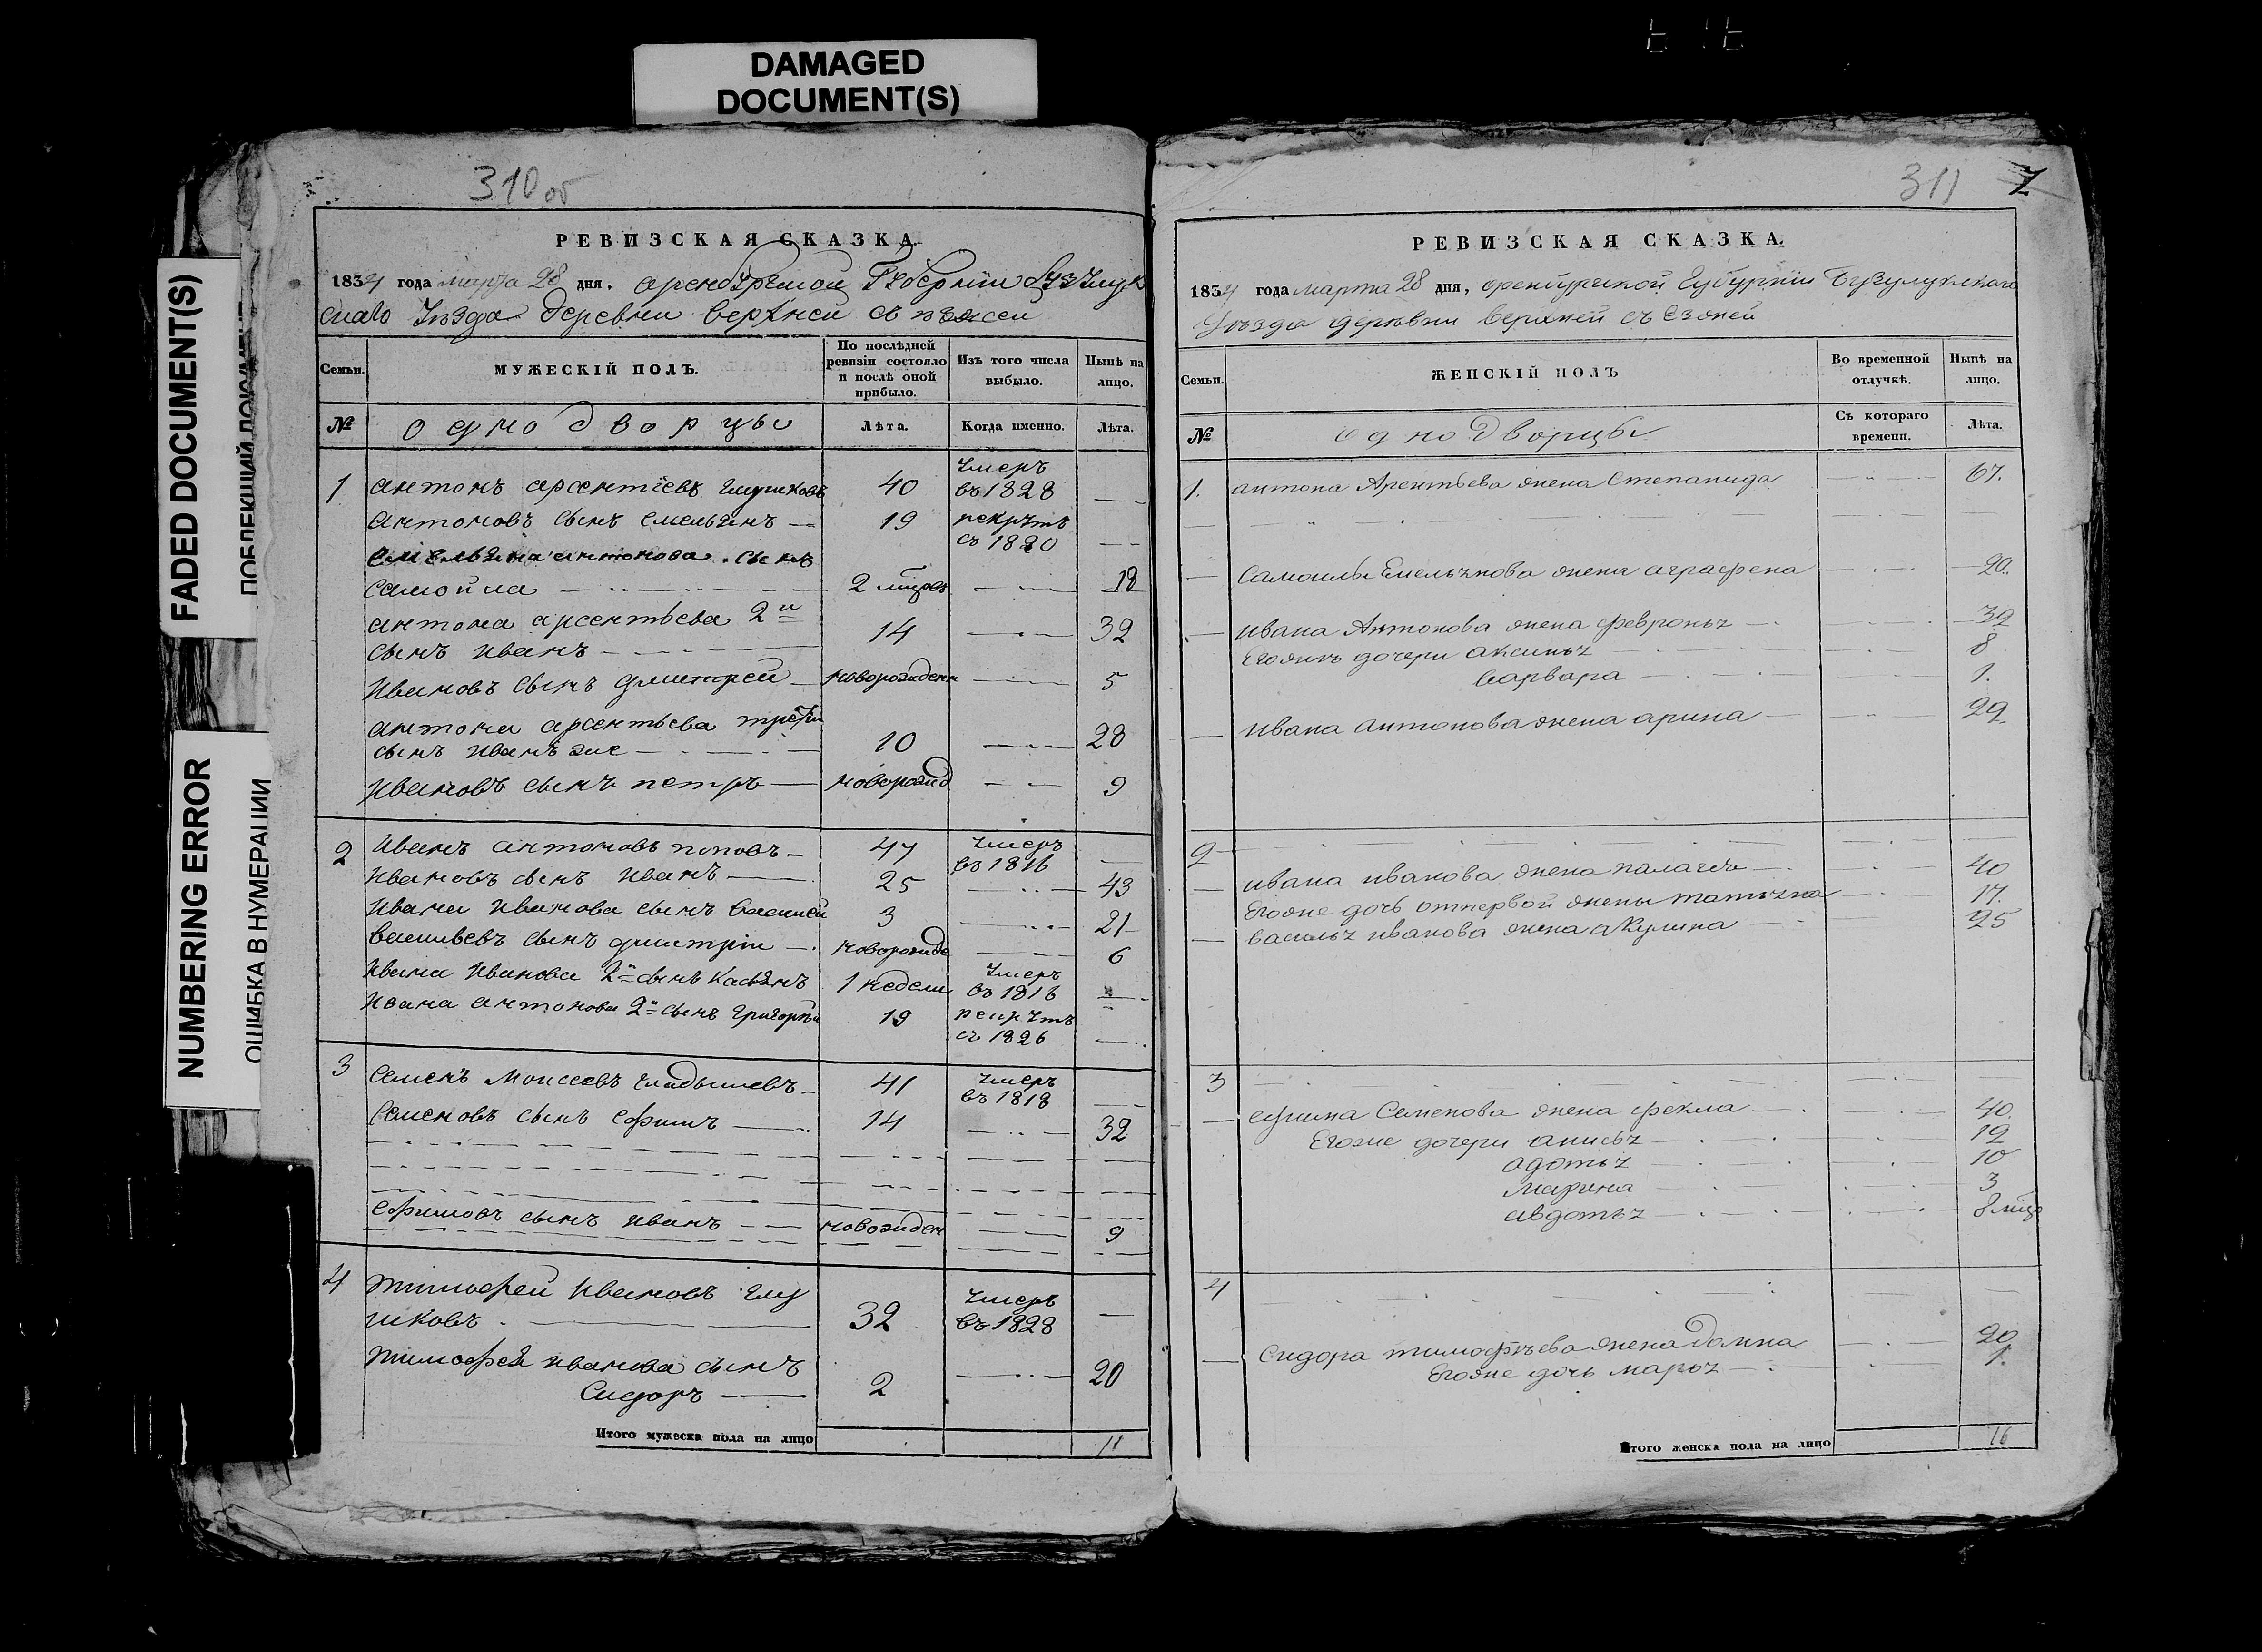 DAMAGED
DOCUMENT(S)
FADED DOCUMENT(S)
NUMBERING ERROR
ОШИБКА В НУМЕРАЦИИ
310 об
РЕВИЗСКАЯ СКАЗКА
1834 года марта 28 дня. оренбургской Губернии бузулук
скаго Уѣзда деревни верхней съѣзжей
Семьи.
МУЖЕСКІЙ ПОЛЪ.
По послѣдней ревизіи состояло и послѣ оной прибыло.
Изъ того числа выбыло.
Нынѣ на лицо.
№
однодворцы
Лѣта.
Когда именно.
Лѣта.
1 антонъ арсентіевъ глушковъ 40 умеръ въ 1828 —
антоновъ сынъ емельянъ — 19 рекрутъ съ 1820 —
емельяна антонова сынъ
самойла — 2 мѣсяцъ — 18
антона арсентьева 2й
сынъ иванъ — 14 — 32
ивановъ сынъ дмитрей — новорожден — 5
антона арсентьева третій
сынъ иванъ же — 10 — 28
ивановъ сынъ петръ — новорожд — 9
2 иванъ антоновъ поповъ — 47 умеръ въ 1816 —
ивановъ сынъ иванъ — 25 — 43
ивана иванова сынъ василей 3 — 21
васильевъ сынъ дмитріи — новорожде — 6
ивана иванова 2й сынъ касьянъ 1 недели умеръ въ 1816 —
ивана антонова 2й сынъ григорей 19 рекрутъ съ 1826 —
3 семенъ моисеевъ гладышевъ — 41 умеръ въ 1818 —
семеновъ сынъ ефимъ — 14 — 32
ефимовъ сынъ иванъ — новожден — 9
4 тимофей ивановъ глу
шковъ — 32 умеръ въ 1828 —
тимофея иванова сынъ
сидоръ — 2 — 20
Итого мужеска пола на лицо 11
311 7
РЕВИЗСКАЯ СКАЗКА.
1834 года марта 28 дня, оренбургской Губурніи Бузулукскаго
Уѣзда деревни верхней съезжей
Семьи.
ЖЕНСКІЙ ПОЛЪ
Во временной отлучкѣ.
Нынѣ на лицо.
№
однодворцы
Съ котораго времени.
Лѣта.
1. антона Арентьева жена Степанида — 67.
— самоилы Емельянова жена аграфена — 20.
— ивана Антонова жена февронья — 32
Егожъ дочери аксинья — 8
варвара — 1.
— ивана антонова жена арина — 29
2
— ивана иванова жена палагея — 40
Егоже дочь отпервой жены татьяна — 17.
— василья иванова жена акулина — 25
3
— ефима Семенова жена фекла — 40.
Егоже дочери анисья — 12
адотья — 10
марина — 3
авдотья — 8 мѣце
4
— сидора тимофѣева жена домна — 20
Егоже дочь марья — 1.
Итого женска пола на лицо 16